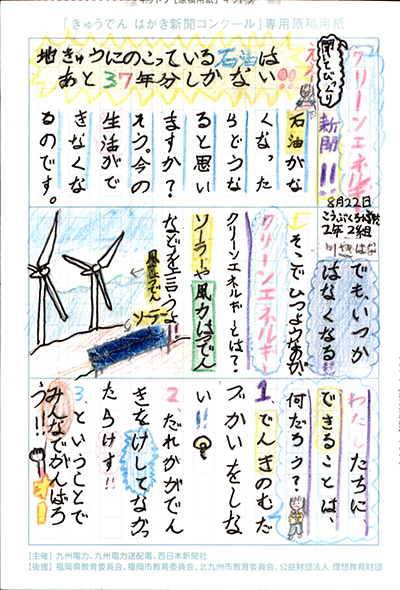 「きゅうでん はがき新聞コンクール」専用原稿用紙
地きゅうにのこっている石油は
あと37年分しかない!!
え?
聞いてびっくり
クリーンエネルギー
新聞!!
8月22日
2年2組
石油がな
くなった
らどうな
ると思い
ますか?
そう。今の
生活がで
きなくな
るのです。
でも、いつか
はなくなる!
そこでひつようなのが、
クリーンエネルギー
クリーンエネルギーとは?
ソーラーや風力はつでん
などを言うよ!!
風力はつでん
ソーラー
わたしたちに、
できることは、
何だろう?
1 でんきのむだ
づかいをしな
い!!
2、だれかがでん
きをけしてなかっ
たらけす!!
3、ということで
みんなでがんばろ
う!!
オー
【主催】九州電力、九州電力送配電、西日本新聞社
【後援】福岡県教育委員会、福岡市教育委員会、北九州市教育委員会、公益財団法人 理想教育財団